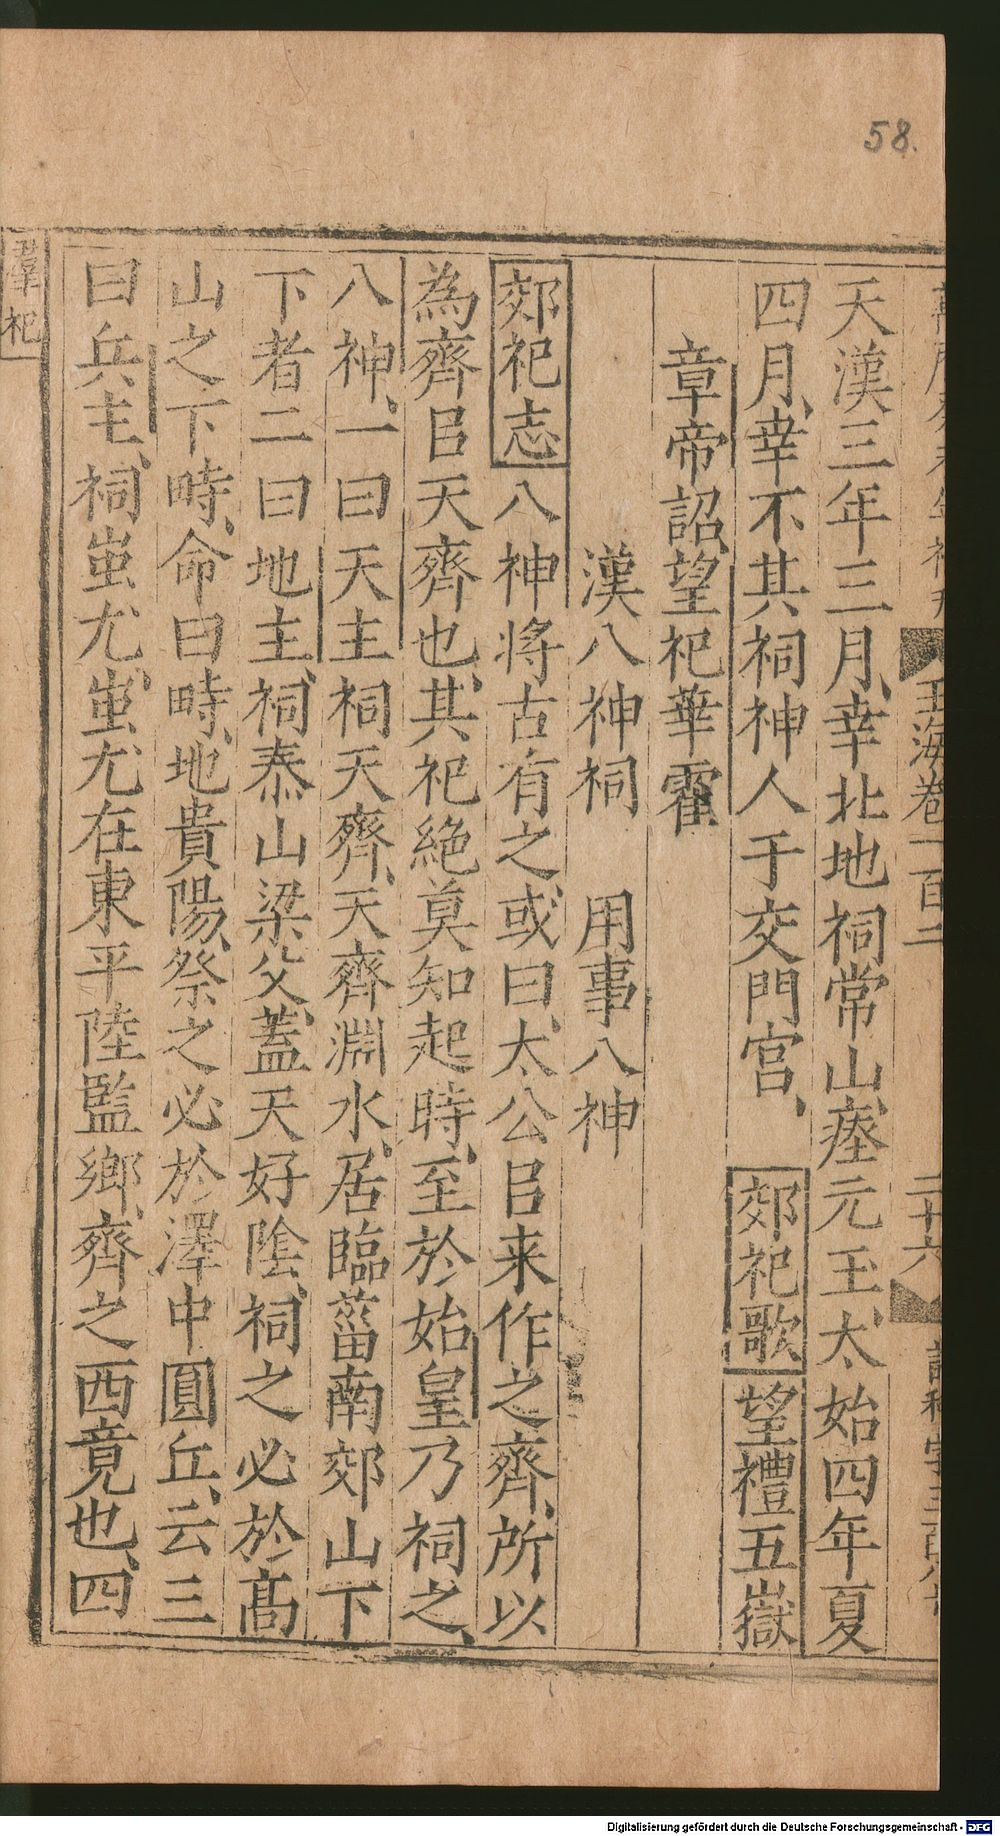 58.
玉海卷一百二 二十六
天漢三年三月幸北地祠常山瘞元玉太始四年夏
四月幸不其祠神人于交門宮 郊祀歌 望禮五嶽
章帝詔望祀華霍
漢八神祠 用事八神
郊祀志 八神將古有之或曰太公㠯来作之齊所以
為齊㠯天齊也其祀絶莫知起時至於始皇乃祠之
八神一曰天主祠天齊天齊淵水居臨菑南郊山下
下者二曰地主祠泰山梁父蓋天好陰祠之必於高
山之下畤命曰畤地貴陽祭之必於澤中圓丘云三
曰兵主祠蚩尤蚩尤在東平陸監鄉齊之西竟也四
羣祀
Digitalisierung gefördert durch die Deutsche Forschungsgemeinschaft - DFG